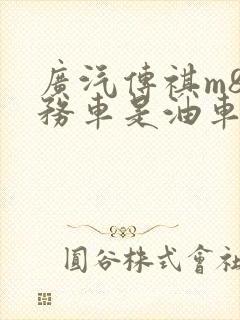 廣汽傳祺m8
務車是油車
圓谷株式會社